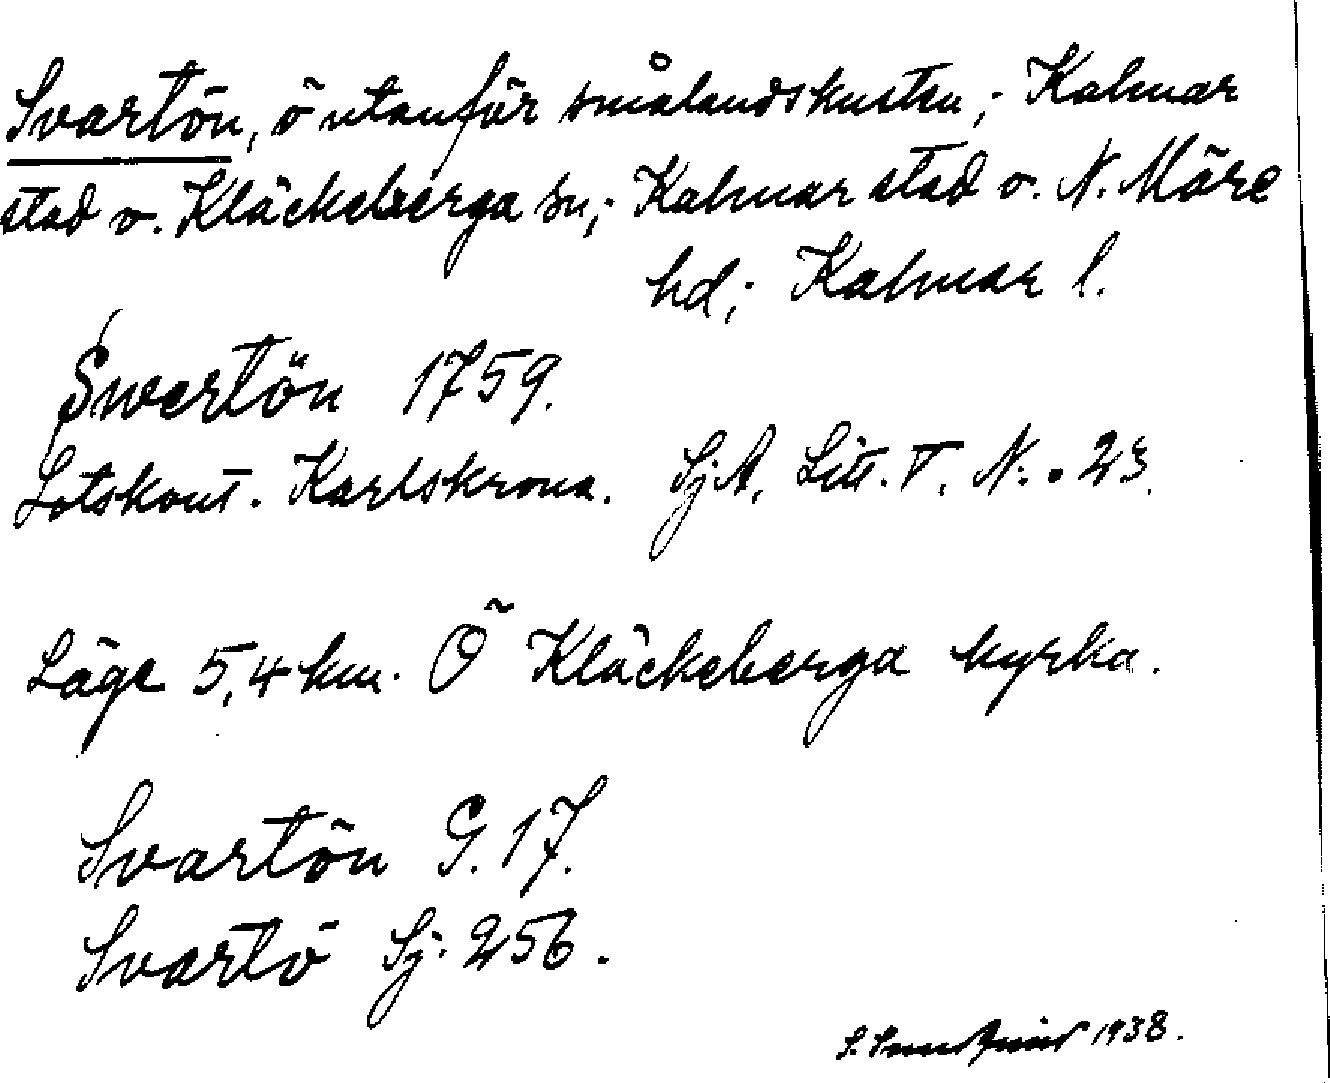 Svartön, ö utanför smålandskusten; Kalmar
stad o. Kläckeberga sn; Kalmar stad o. N. Möre
hd; Kalmar l.
Swartön 1759.
Lotskont. Karlskrona. SjA, Litt. T. N:o 23.
Läge 5,4 km. Ö Kläckeberga kyrka.
Svartön G. 17.
Svartö Sj. 256.
S. 1938.